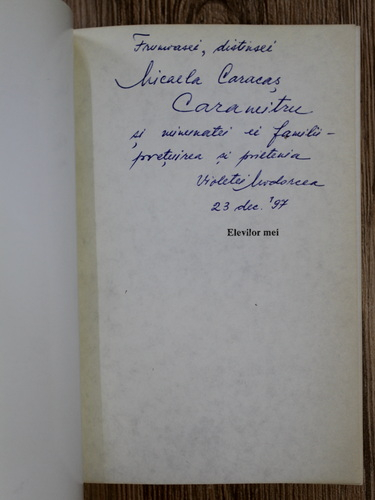 Frumoasei, distinsei
Micaela Caracaș
Caramitru
și minunatei ei familii -
prețuirea și prietenia
Violetei
23 dec. '97
Elevilor mei